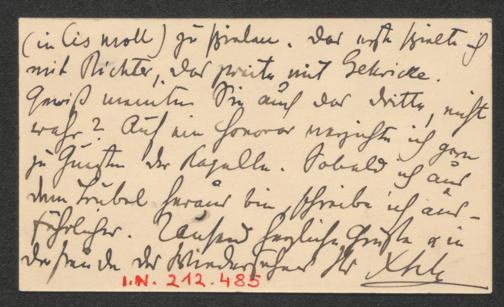 (in Cis moll) zu spielen. Das erste spielte ich
mit Richter, das zweite mit Gericke.
Gewiß meinten Sie auch das dritte, nicht
wahr? Auf ein Honorar verzichte ich gern
zu Gunsten der Kapelle. Sobald ich aus
dem Trubel heraus bin, schreibe ich aus-
führlicher. Tausend herzliche Grüße & in
der Freude des Wiedersehens Ihr
I.N. 212.485